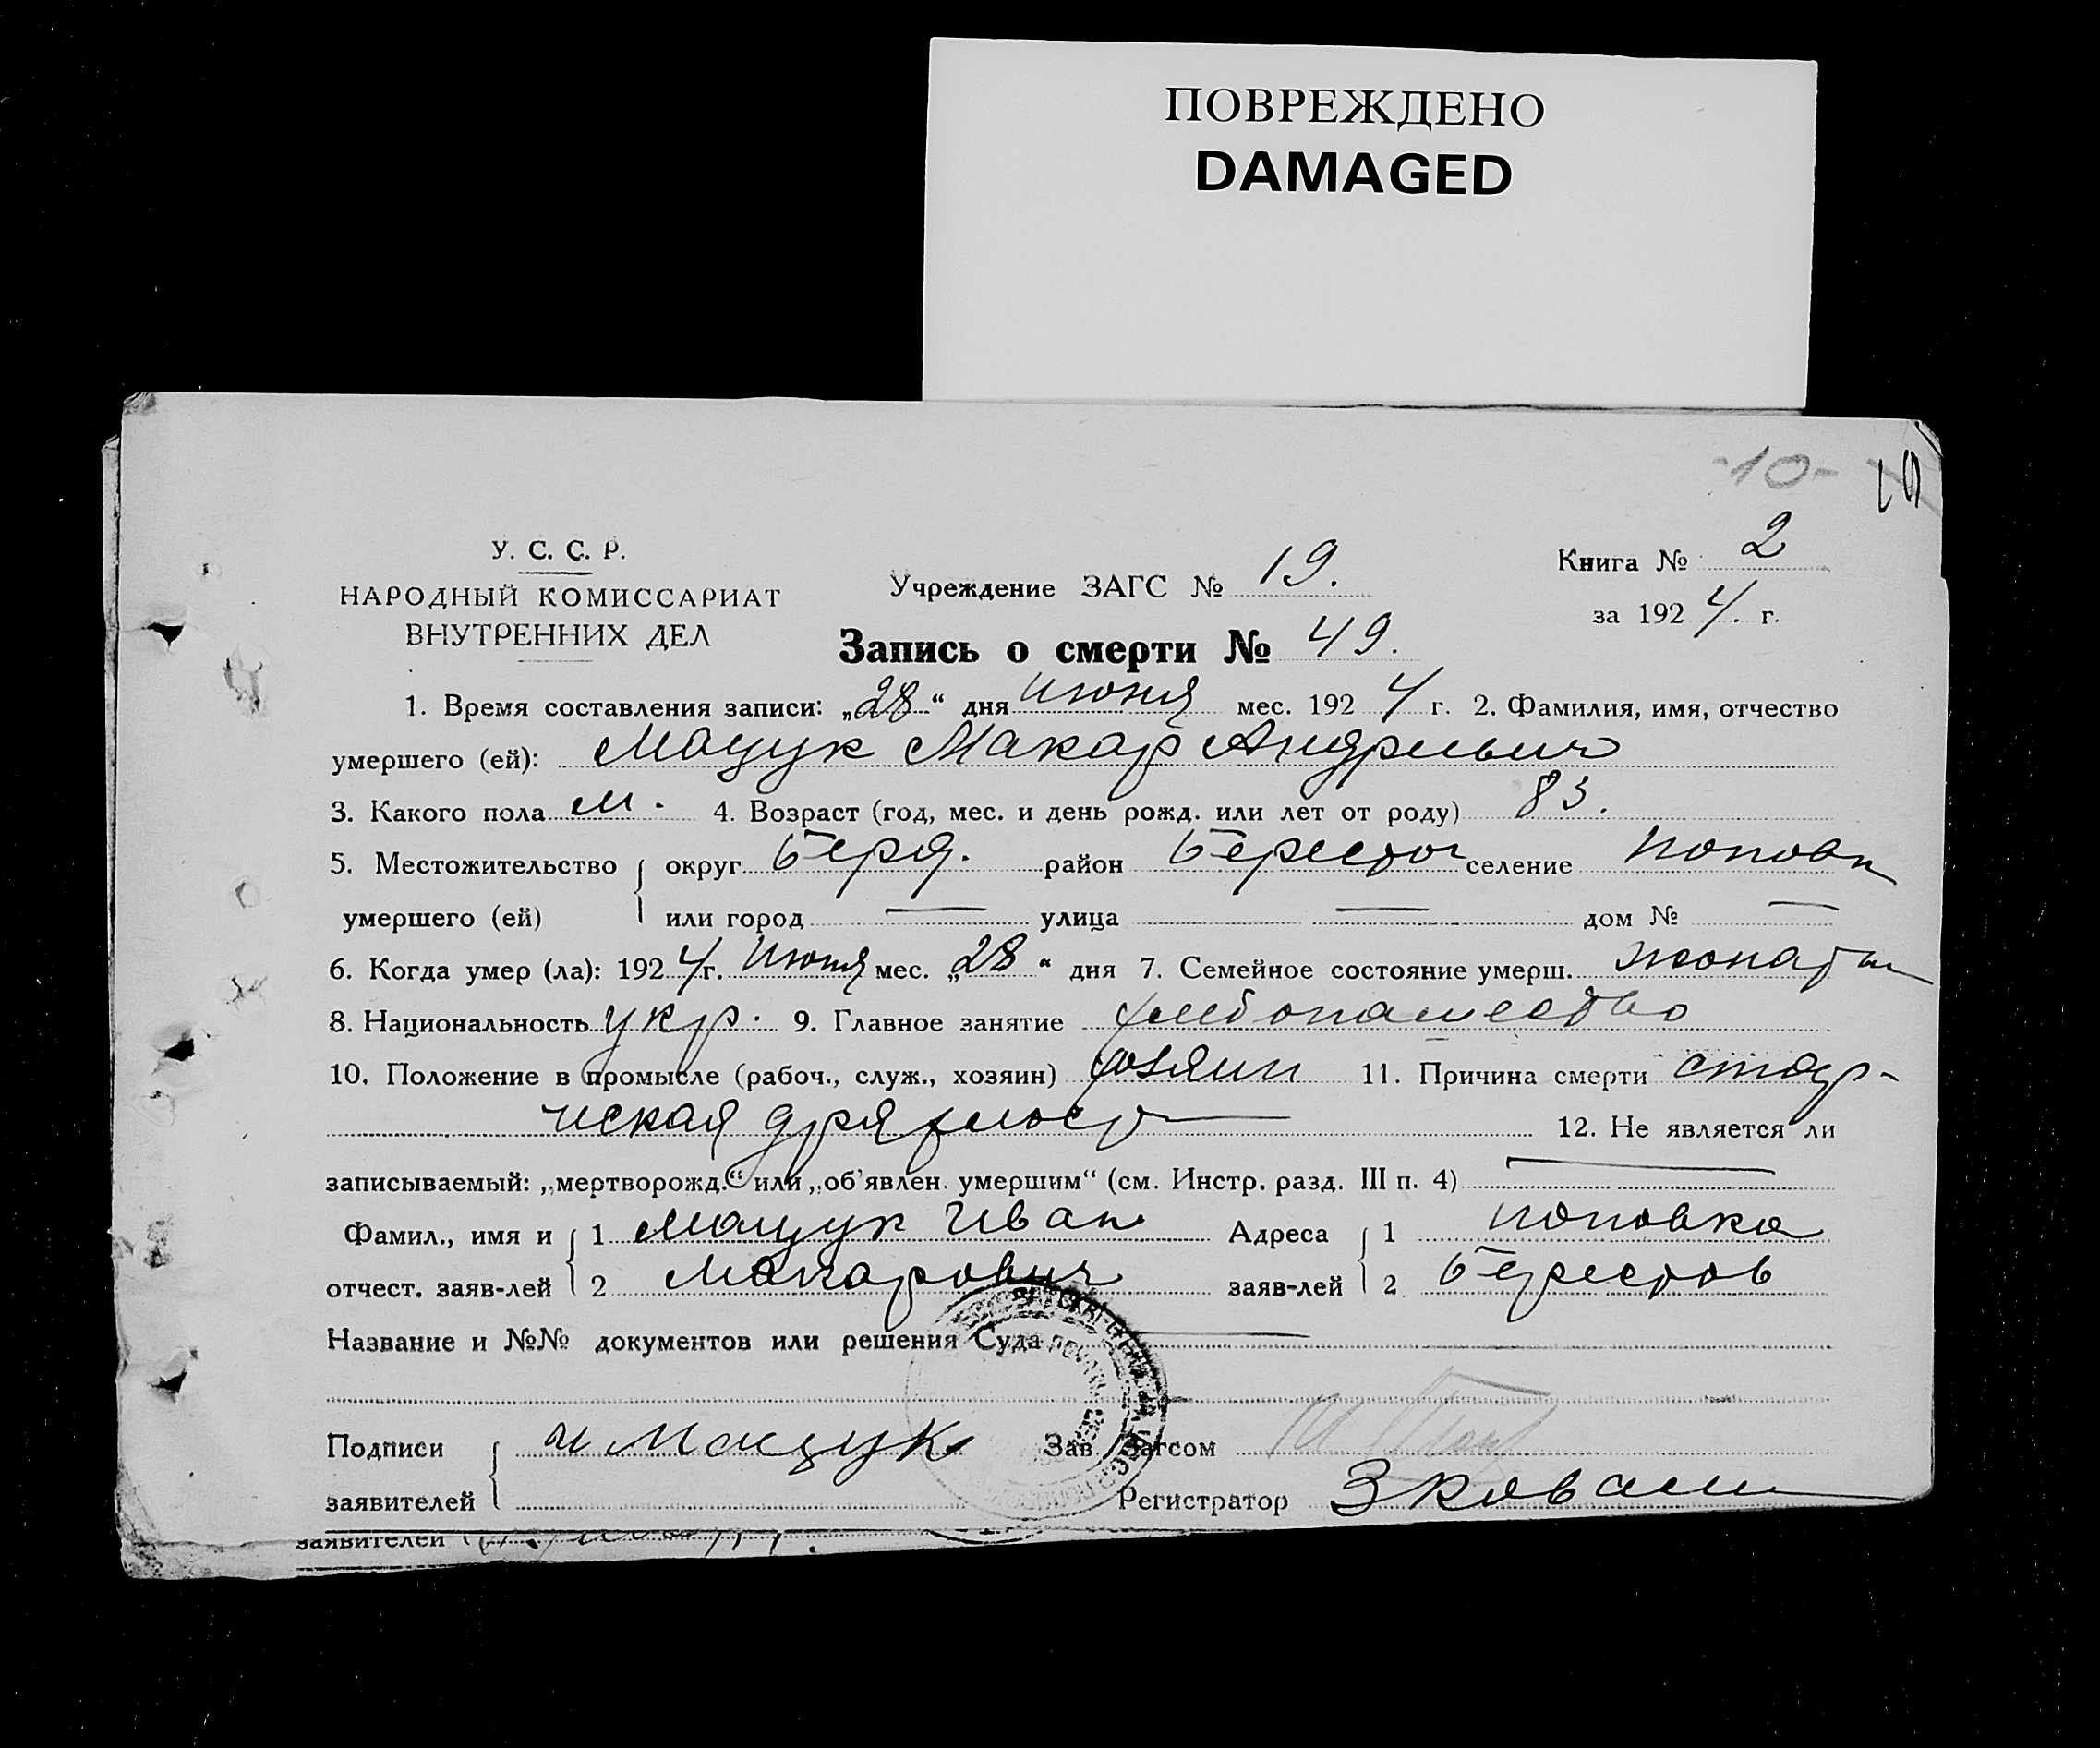 ПОВРЕЖДЕНО
DAMAGED
-10-
У. С. С. Р.
НАРОДНЫЙ КОМИССАРИАТ
ВНУТРЕННИХ ДЕЛ
Учреждение ЗАГС № 19.
Книга № 2
за 1924. г.
Запись о смерти № 49.
1. Время составления записи: „28“ дня июня мес. 1924 г. 2. Фамилия, имя, отчество
умершего (ей): Мацук Макар Андреевич
3. Какого пола м. 4. Возраст (год, мес. и день рожд. или лет от роду) 83.
5. Местожительство округ Берд. район Берестов селение Поповк
умершего (ей) или город — улица — дом № —
6. Когда умер (ла): 1924 г. Июня мес. „28“ дня 7. Семейное состояние умерш. жонаты
8. Национальность укр. 9. Главное занятие хлебопашество
10. Положение в промысле (рабоч., служ., хозяин) хозяин 11. Причина смерти старч-
иская дряхлост 12. Не является ли
записываемый: „мертворожд.“ или „об'явлен. умершим“ (см. Инстр. разд. III п. 4) —
Фамил., имя и 1 Мацук Иван Адреса 1 Поповка
отчест. заяв-лей 2 Макарович заяв-лей 2 Берестов
Название и №№ документов или решения Суда —
Подписи И Мацук Зав. Загсом
заявителей Регистратор
заявителей